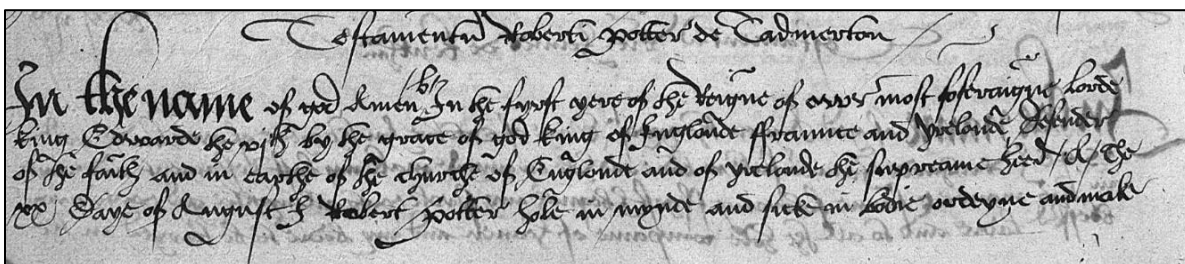 Testamentū Roberti Potter de Tadmerton
In the name of god Amen In the fyrst yere of the Reigne of ower most soferaigne Lorde
king Edwarde the vjth by the grace of god king of Englonde ffraunce and Yrelande defender
of the faith and in earthe of the churche of Englonde and of yrelande the supreame heed / The
xx daye of August I Robert Potter hole in mynde and sicke in bodie ordeyne and make